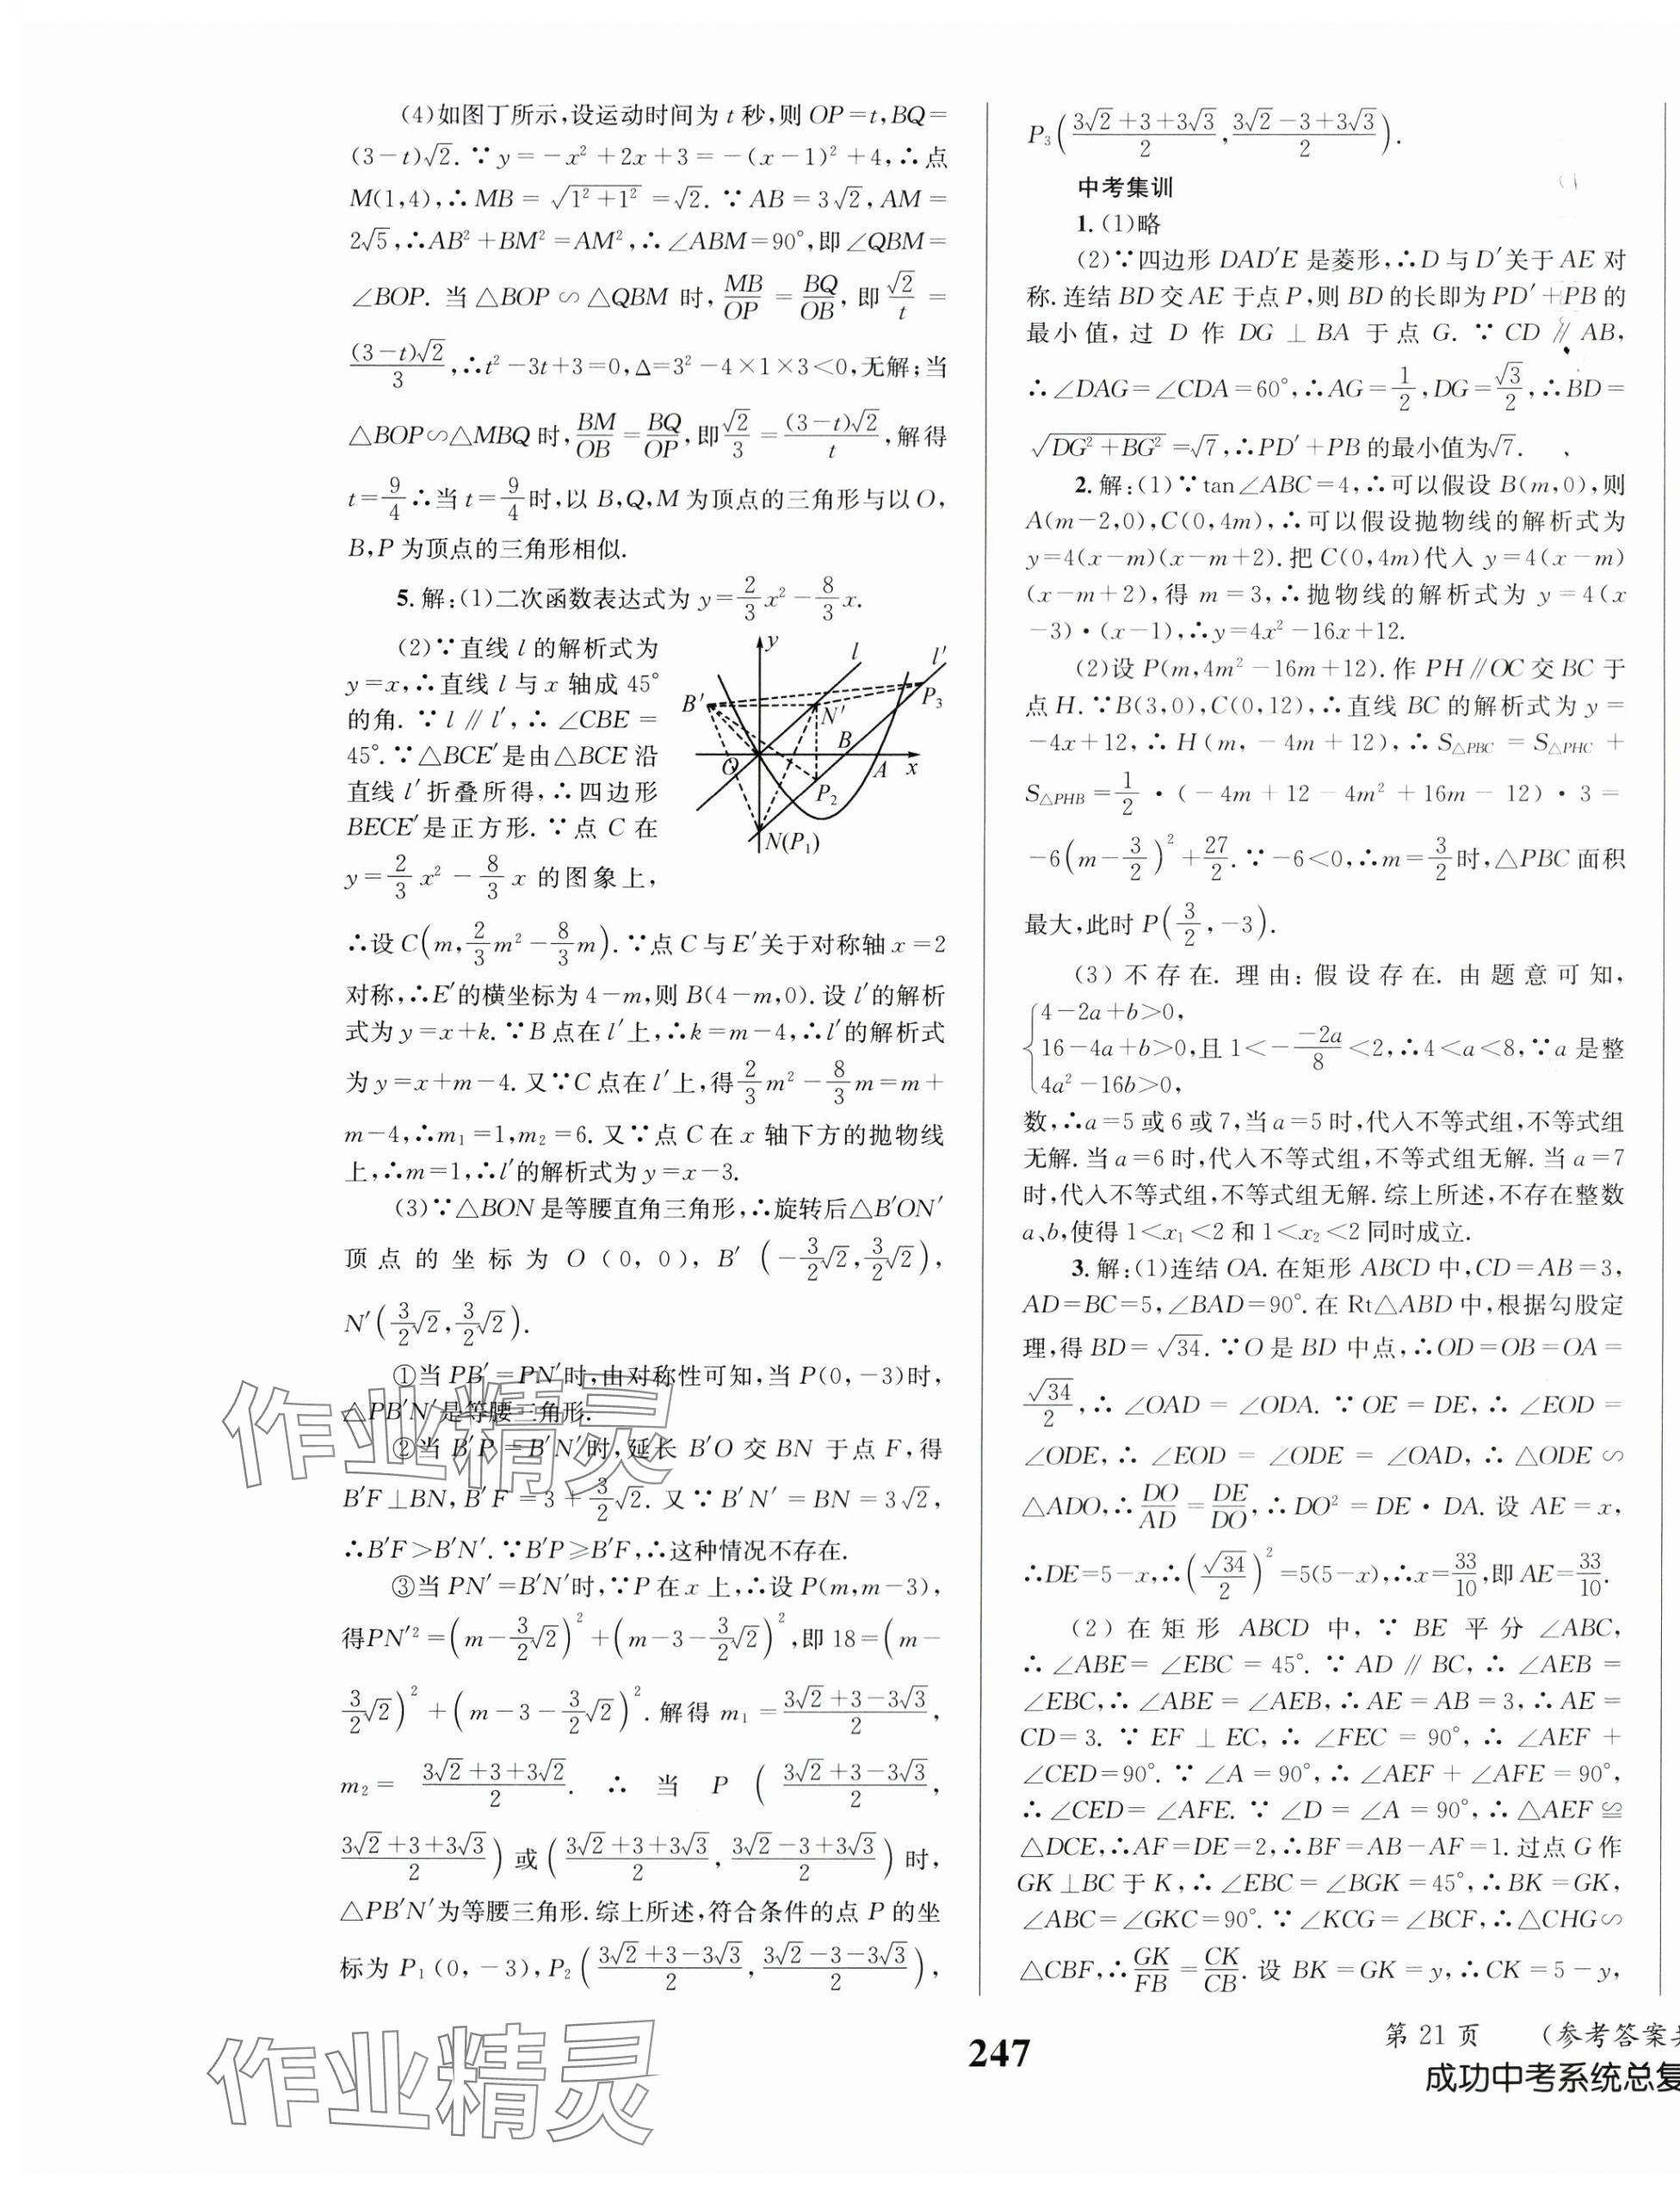 (4)如图丁所示,设运动时间为 t 秒,则 OP=t,BQ=
(3-t)√2. ∵y=-x²+2x+3=-(x-1)²+4,∴点
M(1,4),∴MB=√(1²+1²)=√2. ∵AB=3√2,AM=
2√5,∴AB²+BM²=AM²,∴∠ABM=90°,即∠QBM=
∠BOP. 当△BOP∽△QBM 时,MB/OP=BQ/OB,即√2/t=
(3-t)√2/3,∴t²-3t+3=0,Δ=3²-4×1×3<0,无解;当
△BOP∽△MBQ时,BM/OB=BQ/OP,即√2/3=(3-t)√2/t,解得
t=9/4∴当 t=9/4时,以 B,Q,M 为顶点的三角形与以 O,
B,P 为顶点的三角形相似.
5.解:(1)二次函数表达式为 y=2/3x²-8/3x.
(2)∵直线 l 的解析式为
y=x,∴直线 l 与 x 轴成 45°
的角. ∵l∥l′,∴∠CBE=
45°. ∵△BCE′是由△BCE 沿
直线 l′折叠所得,∴四边形
BECE′是正方形. ∵点 C 在
y=2/3x²-8/3x 的图象上,
y
l
l′
B′
N′
P₃
B
O
A
x
P₂
N(P₁)
∴设 C(m,2/3m²-8/3m). ∵点 C 与 E′关于对称轴 x=2
对称,∴E′的横坐标为 4-m,则 B(4-m,0). 设 l′的解析
式为 y=x+k. ∵B 点在 l′上,∴k=m-4,∴l′的解析式
为 y=x+m-4. 又∵C 点在 l′上,得2/3m²-8/3m=m+
m-4,∴m₁=1,m₂=6. 又∵点 C 在 x 轴下方的抛物线
上,∴m=1,∴l′的解析式为 y=x-3.
(3)∵△BON 是等腰直角三角形,∴旋转后△B′ON′
顶点的坐标为 O(0,0),B′(-3/2√2,3/2√2),
N′(3/2√2,3/2√2).
①当 PB′=PN′时,由对称性可知,当 P(0,-3)时,
△PB′N′是等腰三角形.
②当 B′P=B′N′时,延长 B′O 交 BN 于点 F,得
B′F⊥BN,B′F=3+3/2√2. 又∵B′N′=BN=3√2,
∴B′F>B′N′. ∵B′P≥B′F,∴这种情况不存在.
③当 PN′=B′N′时,∵P 在 x 上,∴设 P(m,m-3),
得PN′²=(m-3/2√2)²+(m-3-3/2√2)²,即 18=(m-
3/2√2)²+(m-3-3/2√2)². 解得 m₁=(3√2+3-3√3)/2,
m₂=(3√2+3+3√2)/2. ∴当 P((3√2+3-3√3)/2,
(3√2+3+3√3)/2)或((3√2+3+3√3)/2,(3√2-3+3√3)/2)时,
△PB′N′为等腰三角形. 综上所述,符合条件的点 P 的坐
标为 P₁(0,-3),P₂((3√2+3-3√3)/2,(3√2-3-3√3)/2),
P₃((3√2+3+3√3)/2,(3√2-3+3√3)/2).
中考集训
1.(1)略
(2)∵四边形 DAD′E 是菱形,∴D 与 D′关于 AE 对
称. 连结 BD 交 AE 于点 P,则 BD 的长即为 PD′+PB 的
最小值,过 D 作 DG⊥BA 于点 G. ∵CD∥AB,
∴∠DAG=∠CDA=60°,∴AG=1/2,DG=√3/2,∴BD=
√(DG²+BG²)=√7,∴PD′+PB 的最小值为√7.
2.解:(1)∵tan∠ABC=4,∴可以假设 B(m,0),则
A(m-2,0),C(0,4m),∴可以假设抛物线的解析式为
y=4(x-m)(x-m+2). 把 C(0,4m)代入 y=4(x-m)
(x-m+2),得 m=3,∴抛物线的解析式为 y=4(x
-3)·(x-1),∴y=4x²-16x+12.
(2)设 P(m,4m²-16m+12). 作 PH∥OC 交 BC 于
点 H. ∵B(3,0),C(0,12),∴直线 BC 的解析式为 y=
-4x+12,∴H(m,-4m+12),∴S△PBC=S△PHC+
S△PHB=1/2·(-4m+12-4m²+16m-12)·3=
-6(m-3/2)²+27/2. ∵-6<0,∴m=3/2时,△PBC 面积
最大,此时 P(3/2,-3).
(3)不存在. 理由:假设存在. 由题意可知,
{4-2a+b>0,
16-4a+b>0,且 1<--2a/8<2,∴4<a<8,∵a 是整
4a²-16b>0,
数,∴a=5 或 6 或 7,当 a=5 时,代入不等式组,不等式组
无解. 当 a=6 时,代入不等式组,不等式组无解. 当 a=7
时,代入不等式组,不等式组无解. 综上所述,不存在整数
a、b,使得 1<x₁<2 和 1<x₂<2 同时成立.
3.解:(1)连结 OA. 在矩形 ABCD 中,CD=AB=3,
AD=BC=5,∠BAD=90°. 在 Rt△ABD 中,根据勾股定
理,得 BD=√34. ∵O 是 BD 中点,∴OD=OB=OA=
√34/2,∴∠OAD=∠ODA. ∵OE=DE,∴∠EOD=
∠ODE,∴∠EOD=∠ODE=∠OAD,∴△ODE∽
△ADO,∴DO/AD=DE/DO,∴DO²=DE·DA. 设 AE=x,
∴DE=5-x,∴(√34/2)²=5(5-x),∴x=33/10,即 AE=33/10.
(2)在矩形 ABCD 中,∵BE 平分∠ABC,
∴∠ABE=∠EBC=45°. ∵AD∥BC,∴∠AEB=
∠EBC,∴∠ABE=∠AEB,∴AE=AB=3,∴AE=
CD=3. ∵EF⊥EC,∴∠FEC=90°,∴∠AEF+
∠CED=90°. ∵∠A=90°,∴∠AEF+∠AFE=90°,
∴∠CED=∠AFE. ∵∠D=∠A=90°,∴△AEF≌
△DCE,∴AF=DE=2,∴BF=AB-AF=1. 过点 G 作
GK⊥BC 于 K,∴∠EBC=∠BGK=45°,∴BK=GK,
∠ABC=∠GKC=90°. ∵∠KCG=∠BCF,∴△CHG∽
△CBF,∴GK/FB=CK/CB. 设 BK=GK=y,∴CK=5-y,
作业精灵
作业精灵
247
第 21 页 (参考答案
成功中考系统总复